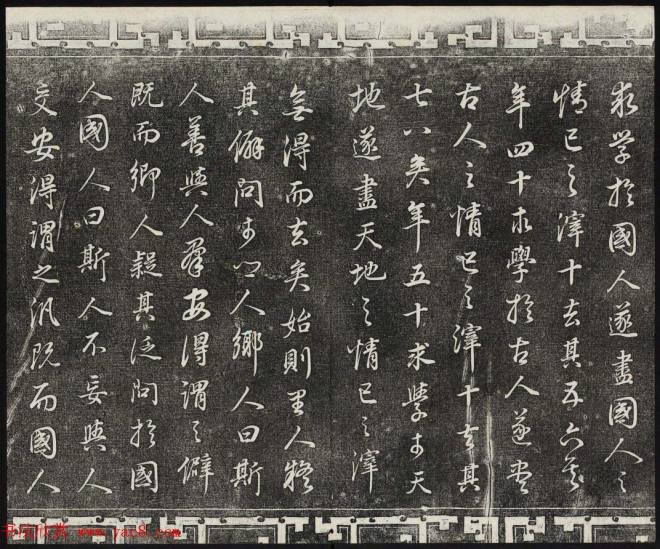 求学於國人遂盡國人之
情已之滓十去其五六矣
年四十求學於古人遂盡
古人之情已之滓十去其
七八矣年五十求學於天
地遂盡天地之情已之滓
無得而去矣始則里人疑
其僻問於鄉人鄉人曰斯
人善與人群安得謂之僻
既而鄉人疑其泛問於國
人國人曰斯人不妄與人
交安得謂之汎既而國人
书法欣赏 www.yac8.com